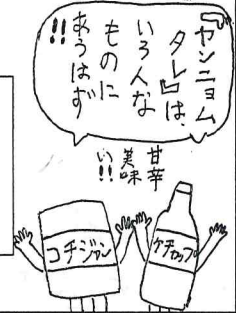 「ヤンニョム
タレ」は、
いろんな
ものに
あうはず
!!
甘辛
美味
い!!
コチジャン
ケチャップ